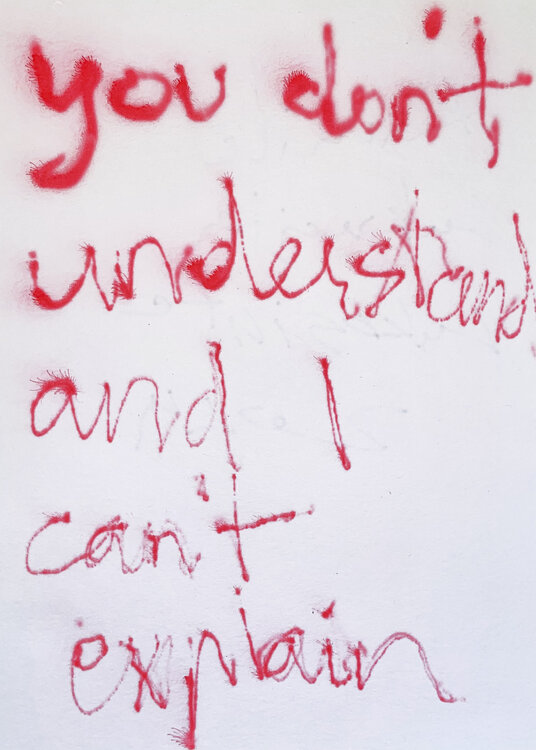 you don't
understand
and I
can't
explain